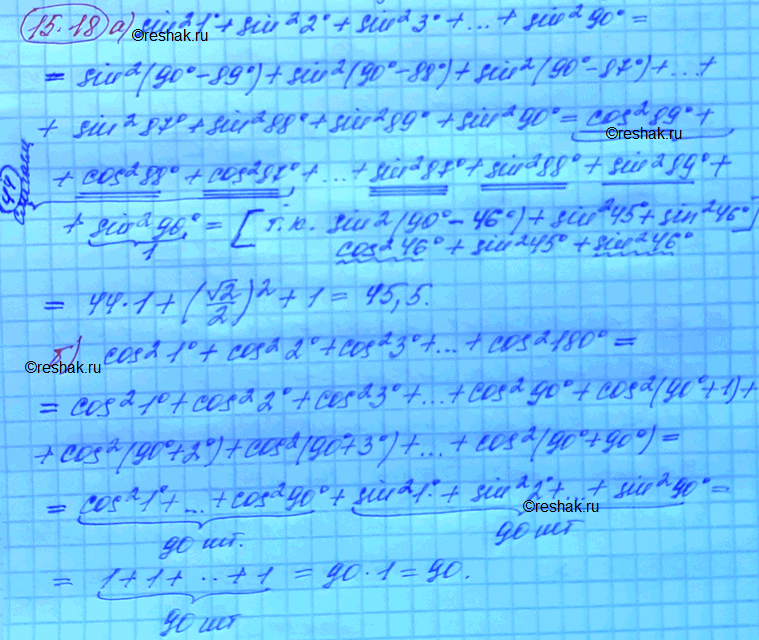 15.18 а) sin²1° + sin²2° + sin²3° + ... + sin²90° =
= sin²(90° - 89°) + sin²(90° - 88°) + sin²(90° - 87°) + ... +
+ sin²87° + sin²88° + sin²89° + sin²90° = cos²89° +
©reshak.ru
+ cos²88° + cos²87° + ... + sin²87° + sin²88° + sin²89° +
44
+ sin²90° = [т.к. sin2(90° - 46°) + sin²45° + sin²46°]
1
cos²46° + sin²45° + sin²46°
= 44·1 + (√2/2)² + 1 = 45,5.
б) cos²1° + cos²2° + cos²3° + ... + cos²180° =
©reshak.ru
= cos²1° + cos²2° + cos²3° + ... + cos²90° + cos²(90°+1) +
+ cos²(90°+2°) + cos²(90°+3°) + ... + cos²(90°+90°) =
= cos²1° + ... + cos²90° + sin²1° + sin²2° + ... + sin²90° =
©reshak.ru
90 шт. 90 шт
= 1 + 1 + ... + 1 = 90·1 = 90.
90 шт
©reshak.ru